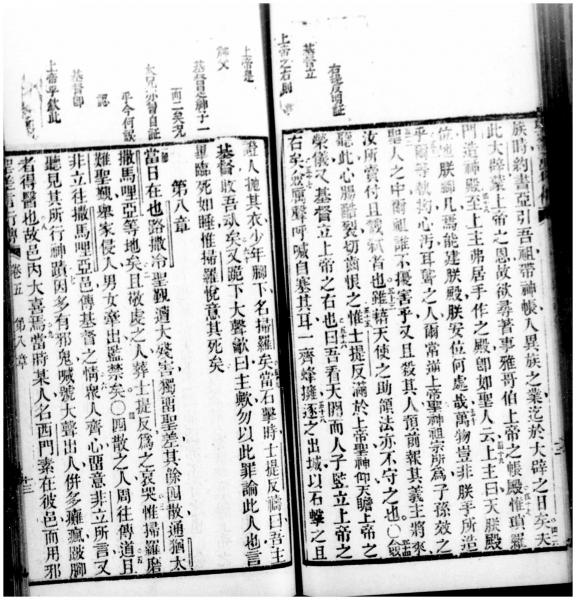 右邊反明証
基督立
上帝之右則
族時約書亞引吾祖帶神帳入異族之業迄於大辟之日矣夫
此大辟蒙上帝之恩故欲尋著事雅哥伯上帝之帳殿惟瑣羅
門造神殿至上主弗居手作之殿卽如聖人云上主曰天朕殿
位地朕脚几焉能建朕殿朕安位何處哉萬物豈非朕手所造
乎爾等執拗心汚耳聾之人爾常滿上帝聖神祖宗所為子孫效之
聖人之中爾祖誰不擾害乎又且殺其人預前報其義主將來
汝所賣付且殺弒者也雖藉天使之助領法亦不守之也○
聽此心腸酷裂切齒恨之惟士提反滿於上帝聖神仰天瞻上帝之
榮儀又基督立上帝之右也曰吾看天開而人子竪立上帝之
右矣衆厲聲呼喊自塞其耳一齊蜂擁逐之出城以石擊之且
上帝是
解父
基督是神子一
而二矣况
太兄亦曾自証
乎今何誤
認
基督卽
上帝乎欽此
證人拋其衣少年腳下名掃羅矣當石擊時士提反禱曰吾主
基督收吾㚑矣又跪下大聲歔曰主歟勿以此罪論此人也言
畢臨死如睡惟掃羅悅意其死矣
第八章
當日在也路撒冷聖覡遭大殘害獨留聖差其餘四散通猶太
撒馬哩亞等地矣且敬虔之人葬士提反為之哀哭惟掃羅磨
難聖覡舉家侵人男女牽出監禁矣○四散之人周往傳道且
非立往撒馬哩亞邑傳基督之情衆人齊心留意非立所言又
聽見其所行神蹟因多有邪鬼喊號大聲出人併多癱瘋跛腳
者得醫也故邑內大喜焉當時某人名西門素在彼邑而用邪
聖差言行傳 卷五 第八章 十三